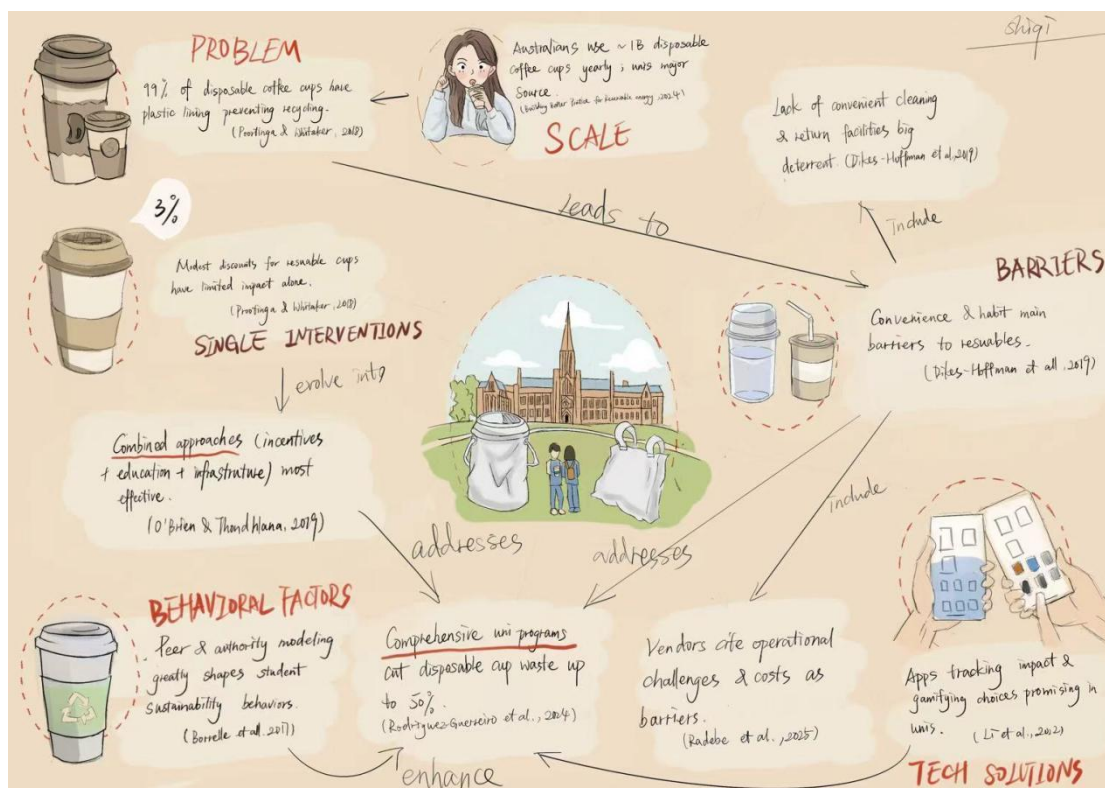 shiqi
PROBLEM
99% of disposable coffee cups have
plastic lining preventing recycling.
(Poortinga & Whitaker, 2018)
Australians use ~1B disposable
coffee cups yearly ; unis major
source.
(Building Better Practice for Renewable energy, 2024)
SCALE
Lack of convenient cleaning
& return facilities big
deterrent (Dikes-Hoffman et al, 2019)
Leads to
include
3%
Modest discounts for resuable cups
have limited impact alone.
(Prootinga & Whitaker, 2018)
SINGLE INTERVENTIONS
evolve into
BARRIERS
Convenience & habit main
barriers to resuables.
(Dikes-Hoffman et all, 2019)
Combined approaches (incentives
+ education + infrastruture) most
effective.
(O'Brien & Thondhlana, 2019)
addresses
addresses
include
BEHAVIORAL FACTORS
Peer & authority modeling
greatly shapes student
sustainability behaviors.
(Borrelle et all. 2017)
Comprehensive uni programs
cut disposable cup waste up
to 50%.
(Rodriguez-Guerreiro et al., 2024)
enhance
Vendors cite operational
challenges & costs as
barriers.
(Radebe et al., 2025)
Apps tracking impact &
gamifying choices promising in
unis.
(Li et al., 2012)
TECH SOLUTIONS